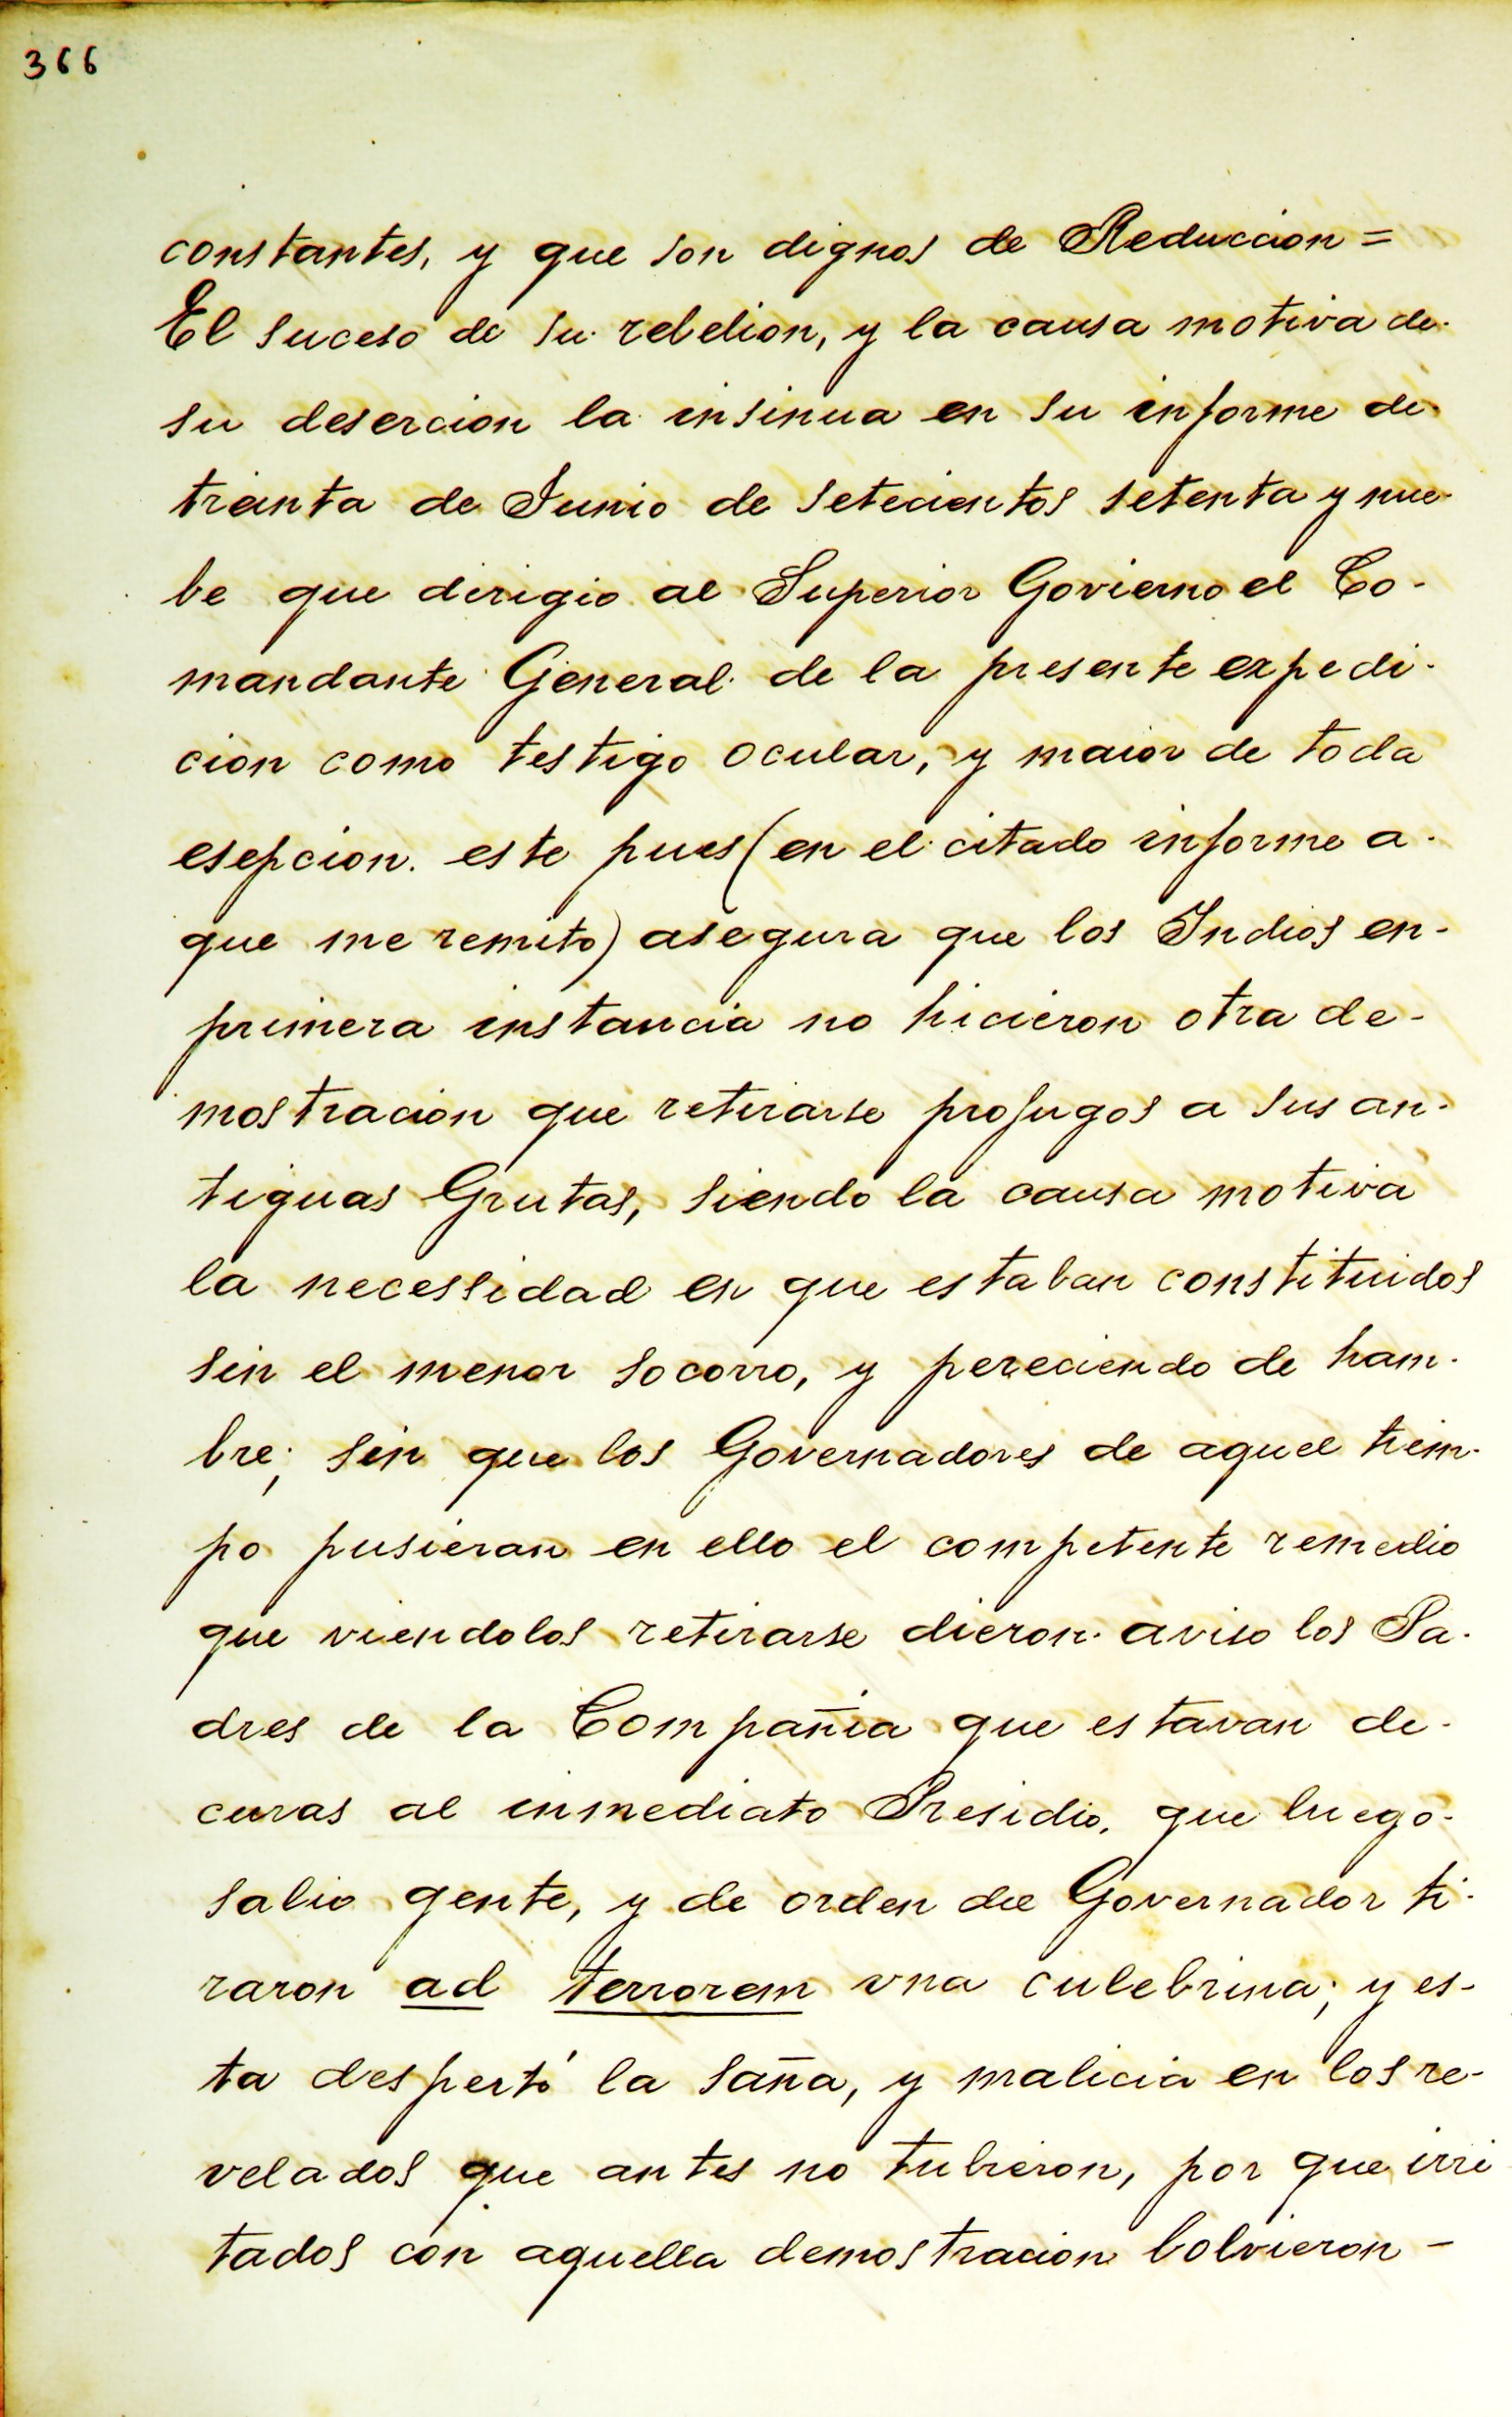 366
constantes, y que son dignos de Reduccion =
El suceso de su rebelion, y la causa motiva de
su desercion la insinua en su informe de
treinta de Junio de setecientos setenta y nue-
be que dirigio al Superior Govierno el Co-
mandante General de la presente expedi-
cion como testigo ocular, y maior de toda
esepcion. este pues (en el citado informe a
que me remito) asegura que los Indios en-
primera instancia no hicieron otra de-
mostracion que retirarse profugos a sus an-
tiguas Grutas, siendo la causa motiva
la necessidad en que estaban constituidos
sin el menor socorro, y pereciendo de ham-
bre; sin que los Governadores de aquel tiem-
po pusieran en ello el competente remedio
que viendolos retirarse dieron aviso los Pa-
dres de la Compañia que estavan de-
curas al inmediato Presidio, que luego-
salio gente, y de orden del Governador ti-
raron ad terrorem vna culebrina; y es-
ta despertó la saña, y malicia en los re-
velados que antes no tubieron, por que irri
tados con aquella demostracion bolvieron -